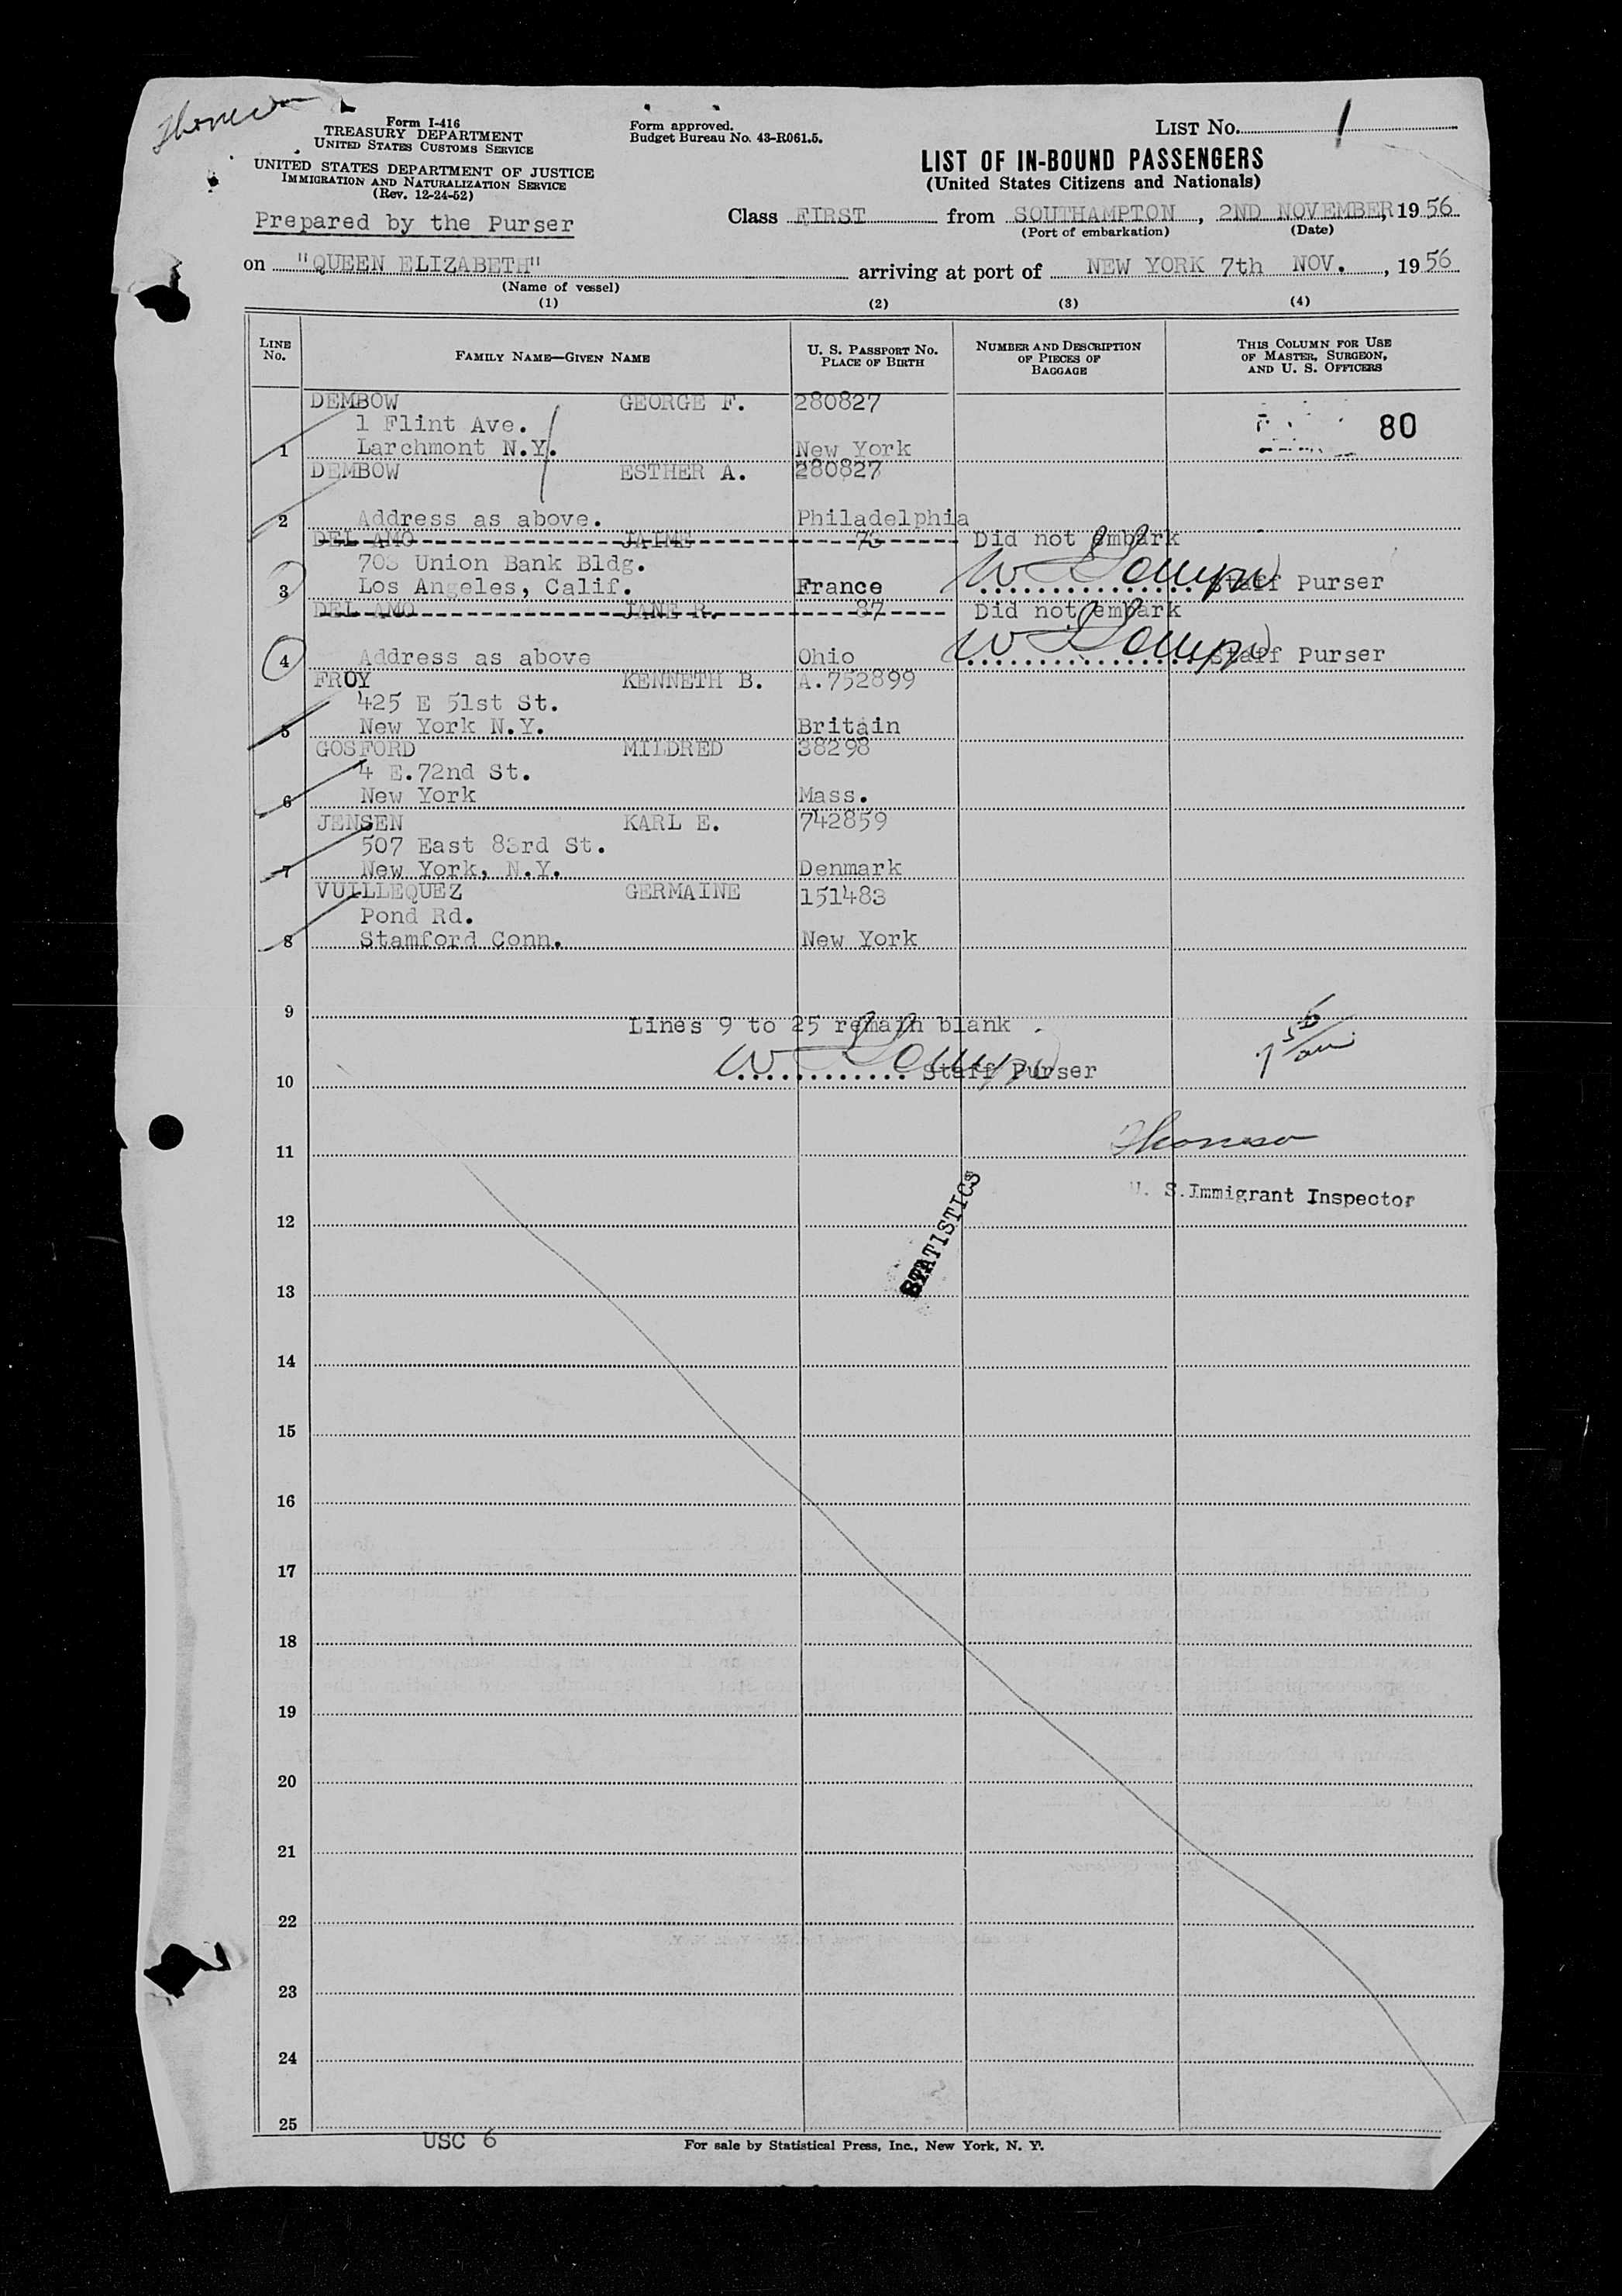 Form I-416
TREASURY DEPARTMENT
UNITED STATES CUSTOMS SERVICE
UNITED STATES DEPARTMENT OF JUSTICE
IMMIGRATION AND NATURALIZATION SERVICE
(Rev. 12-24-52)
Prepared by the Purser
Form approved.
Budget Bureau No. 43-R061.5.
LIST No. 1
LIST OF IN-BOUND PASSENGERS
(United States Citizens and Nationals)
Class FIRST from SOUTHAMPTON, 2ND NOVEMBER, 1956
(Port of embarkation) (Date)
on "QUEEN ELIZABETH" arriving at port of NEW YORK 7th NOV., 1956
(Name of vessel)
(1) (2) (3) (4)
LINE No. FAMILY NAME—GIVEN NAME U. S. PASSPORT No. PLACE OF BIRTH NUMBER AND DESCRIPTION OF PIECES OF BAGGAGE THIS COLUMN FOR USE OF MASTER, SURGEON, AND U. S. OFFICERS
DEMBOW GEORGE F. 280827
1 Flint Ave. 80
1 Larchmont N.Y. New York
DEMBOW ESTHER A. 280827
2 Address as above. Philadelphia
DEL AMO JAIME 73 Did not embark
703 Union Bank Bldg.
3 Los Angeles, Calif. France Staff Purser
DEL AMO JANE R. 87 Did not embark
4 Address as above Ohio Staff Purser
FROY KENNETH B. A.752899
425 E 51st St.
5 New York N.Y. Britain
GOSFORD MILDRED 38298
4 E.72nd St.
6 New York Mass.
JENSEN KARL E. 742859
507 East 83rd St.
7 New York, N.Y. Denmark
VUILLEQUEZ GERMAINE 151483
Pond Rd.
8 Stamford Conn. New York
9
Lines 9 to 25 remain blank
Staff Purser
10
11
U. S. Immigrant Inspector
12
STATISTICS
13
14
15
16
17
18
19
20
21
22
23
24
25
USC 6
For sale by Statistical Press, Inc., New York, N. Y.